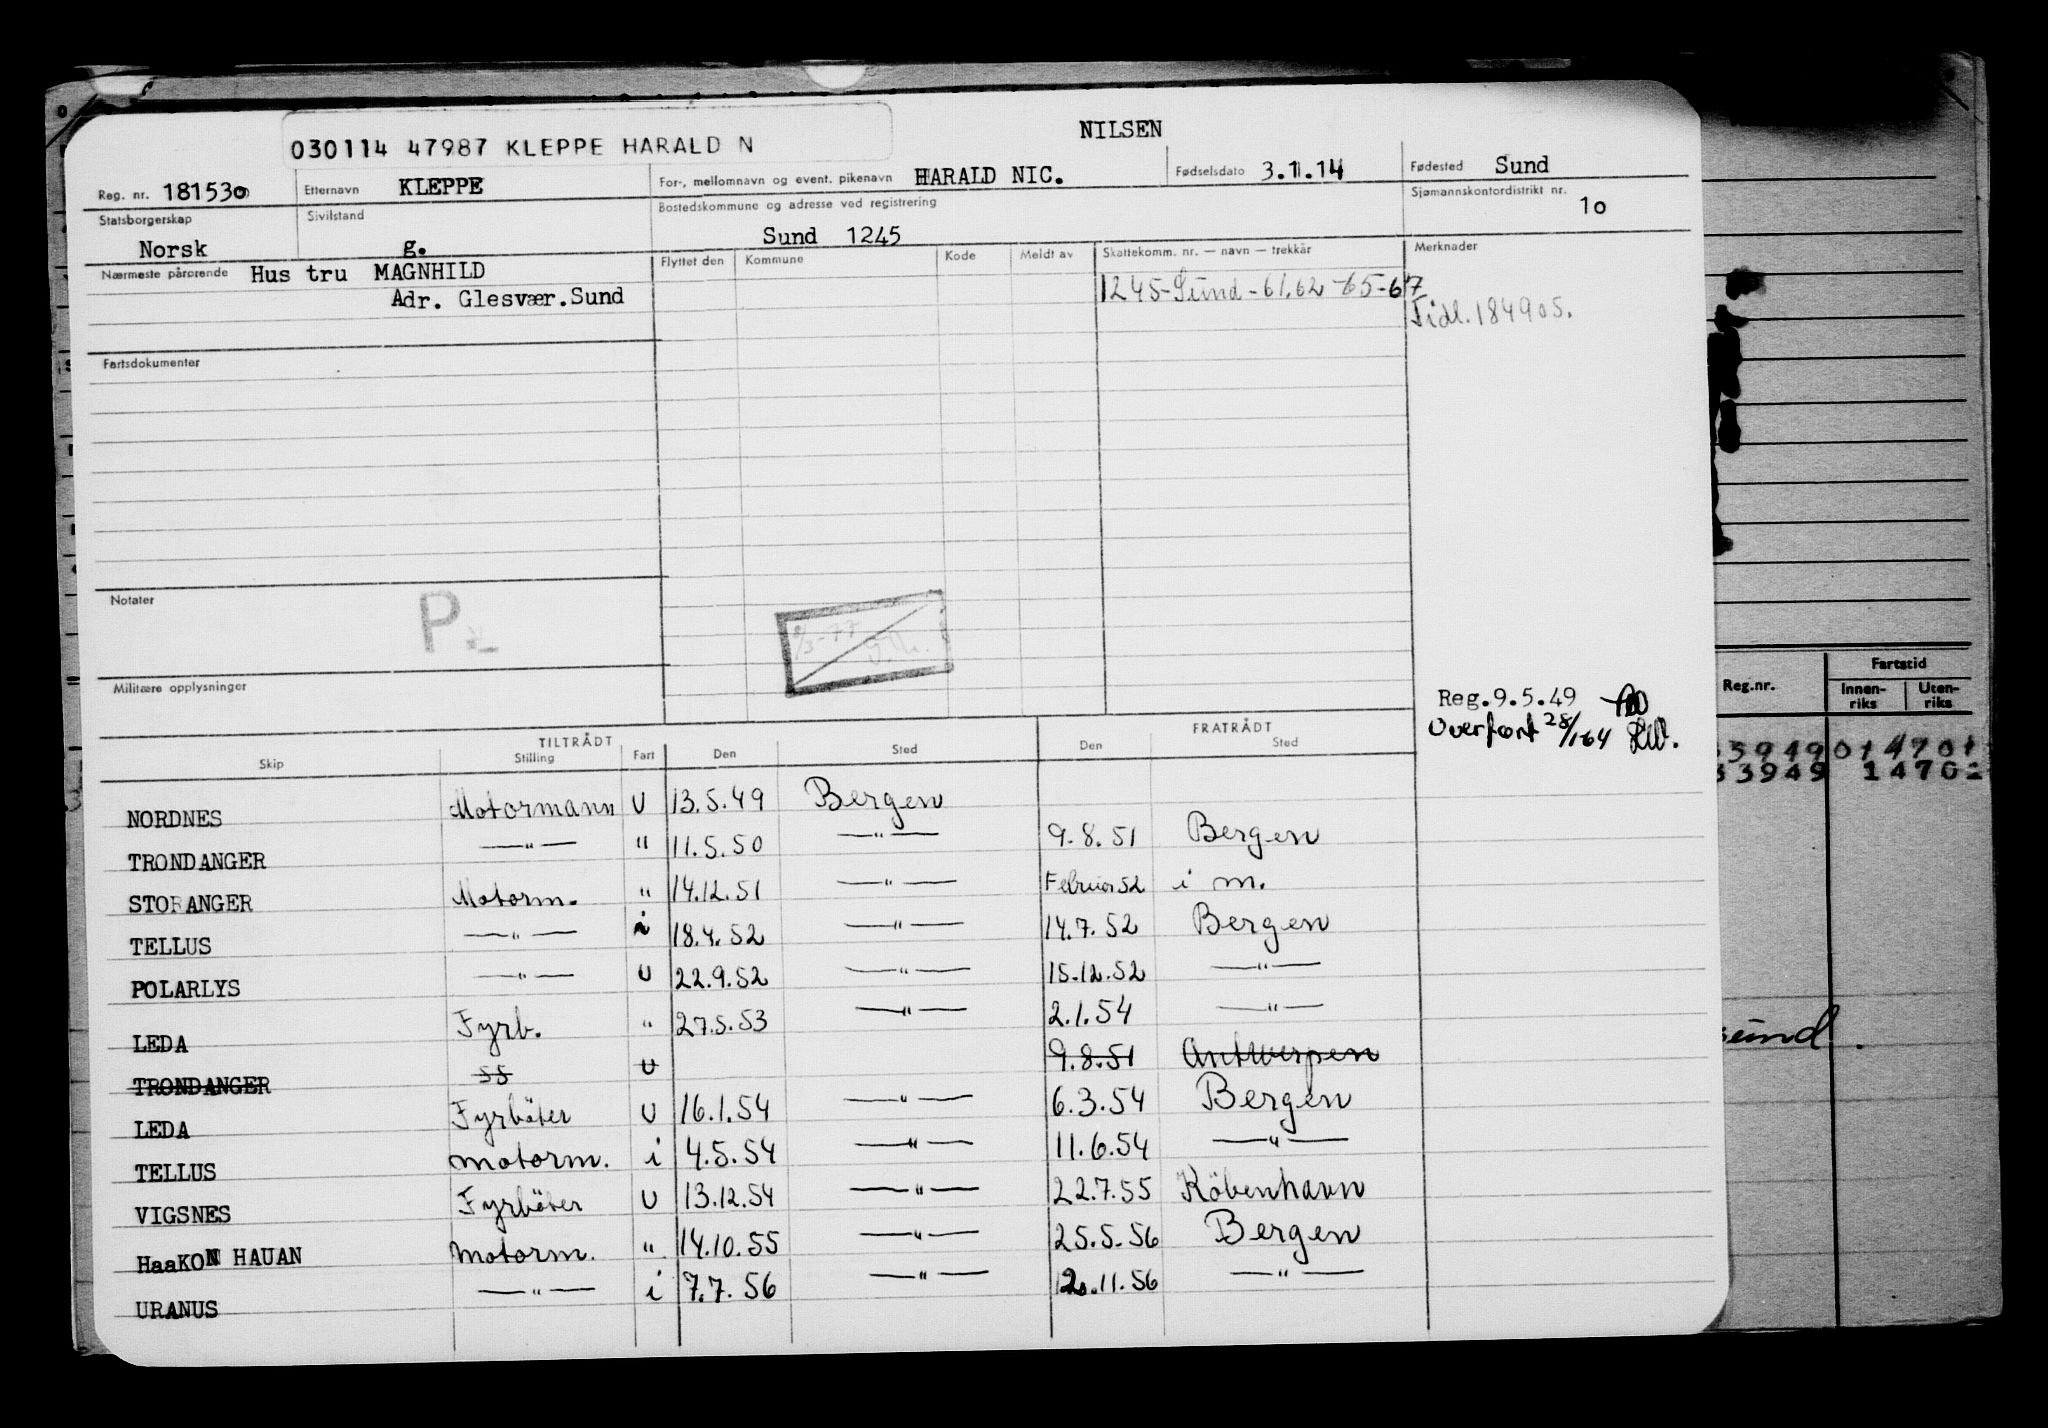 NILSEN
030114 47987 KLEPPE HARALD N
Reg. nr. 181530 Etternavn KLEPPE For-, mellomnavn og event. pikenavn HARALD NIC. Fødselsdato 3.1.14 Fødested Sund
Statsborgerskap Norsk Sivilstand g. Bostedskommune og adresse ved registrering Sund 1245 Sjømannskontordistrikt nr. 10
Nærmeste pårørende Hus tru MAGNHILD Flyttet den Kommune Kode Meldt av Skattekomm. nr. — navn — trekkår Merknader
Adr. Glesvær.Sund 1245-Sund-61.62-65-67
Tidl. 184905.
Fartsdokumenter
Notater P
Militære opplysninger
Reg.nr. Fartstid
Innen-riks Uten-riks
Reg.9.5.49
Overført 28/1-64
TILTRÅDT FRATRÅDT
Skip Stilling Fart Den Sted Den Sted
NORDNES Motormann U 13.5.49 Bergen
TRONDANGER —"— " 11.5.50 —"— 9.8.51 Bergen
STORANGER Motorm. " 14.12.51 —"— Februar 52 i m.
TELLUS —"— i 18.4.52 —"— 14.7.52 Bergen
POLARLYS —"— U 22.9.52 —"— 15.12.52 —"—
LEDA Fyrb. " 27.5.53 —"— 2.1.54 —"—
TRONDANGER U 9.8.51 Antwerpen
LEDA Fyrböter U 16.1.54 —"— 6.3.54 Bergen
TELLUS motorm. i 4.5.54 —"— 11.6.54 —"—
VIGSNES Fyrböter U 13.12.54 —"— 22.7.55 Köbenhavn
HaaKON HAUAN motorm. " 14.10.55 —"— 25.5.56 Bergen
URANUS —"— i 7.7.56 —"— 20.11.56 —"—